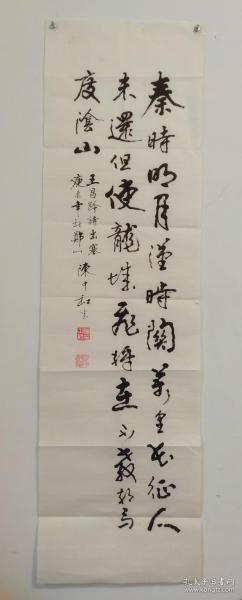 秦時明月漢時關萬里長征人
未還但使龍城飛將在不教胡馬
度陰山
王昌齡詩出塞
陳中